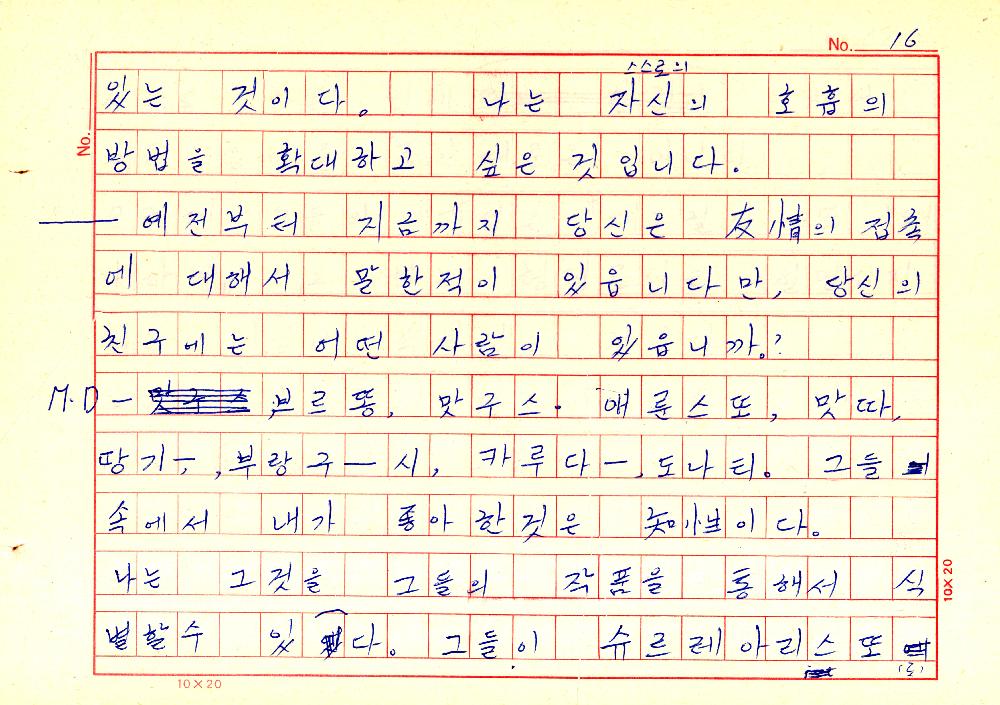 No. 16
스스로의
있는 것이다. 나는 자신의 호흡의
No.
방법을 확대하고 싶은 것입니다.
— 예전부터 지금까지 당신은 友情의 접촉
에 대해서 말한적이 있읍니다만, 당신의
친구에는 어떤 사람이 있읍니까?
M.D — 부르똥, 맛구스. 에룬스또, 맛따,
땅기ー, 부랑구ー시, 카루다ー, 도나티. 그들
속에서 내가 좋아한것은 知性이다.
나는 그것을 그들의 작품을 통해서 식
별할수 있다. 그들이 슈르레아리스또
(를)
10×20
10×20